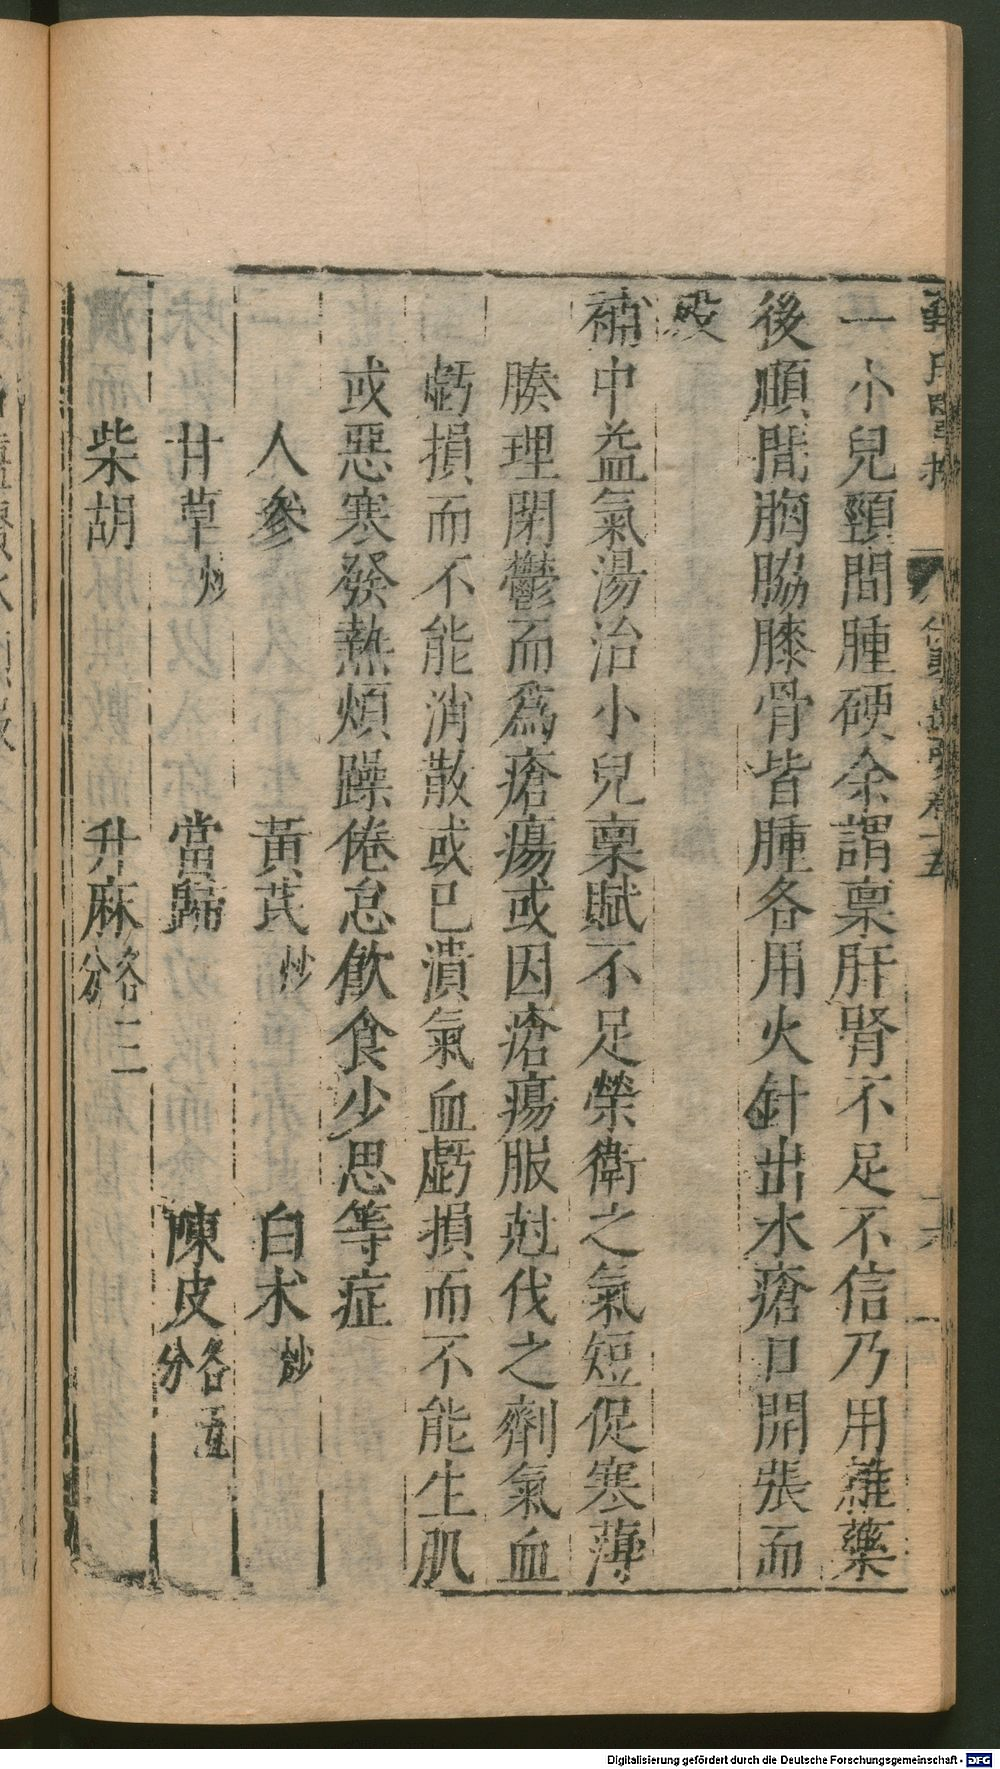 一小兒頸間腫硬余謂禀肝腎不足不信乃用雜藥
後順間胸脇膝骨皆腫各用火針出水瘡口開張而
歿
補中益氣湯治小兒禀賦不足榮衛之氣短促寒薄
腠理閉鬱而爲瘡瘍或因瘡瘍服尅伐之劑氣血
虧損而不能消散或已潰氣血虧損而不能生肌
或惡寒發熱煩躁倦怠飲食少思等症
人參 黃芪炒 白术炒
甘草炒 當歸 陳皮各五分
柴胡 升麻各三分
Digitalisierung gefördert durch die Deutsche Forschungsgemeinschaft - DFG